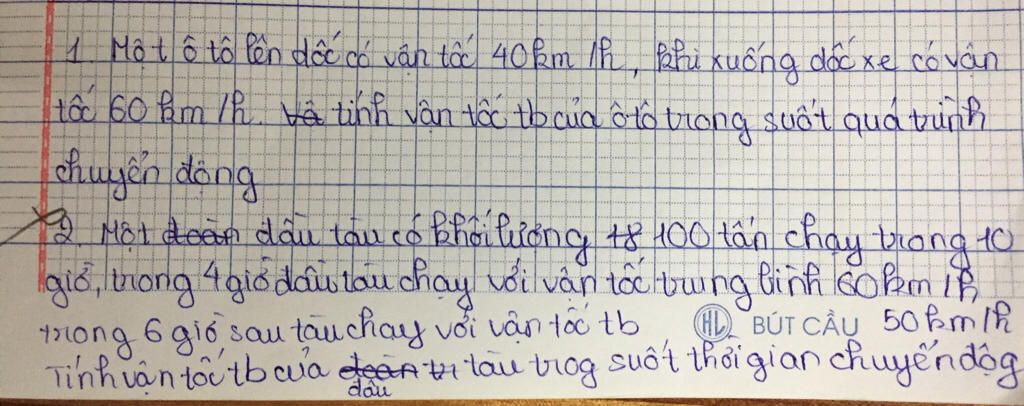 1. Một ô tô lên dốc có vận tốc 40km/h, khi xuống dốc xe có vận
tốc 60km/h. Và tính vận tốc tb của ô tô trong suốt quá trình
chuyển động
2. Một đoàn đầu tàu có khối lượng 18 100 tấn chạy trong 10
giờ, trong 4 giờ đầu tàu chạy với vận tốc trung bình 60km/h
trong 6 giờ sau tàu chạy với vận tốc tb HL BÚT CẦU 50km/h
Tính vận tốc tb của đoàn tàu trog suốt thời gian chuyển độg
đầu